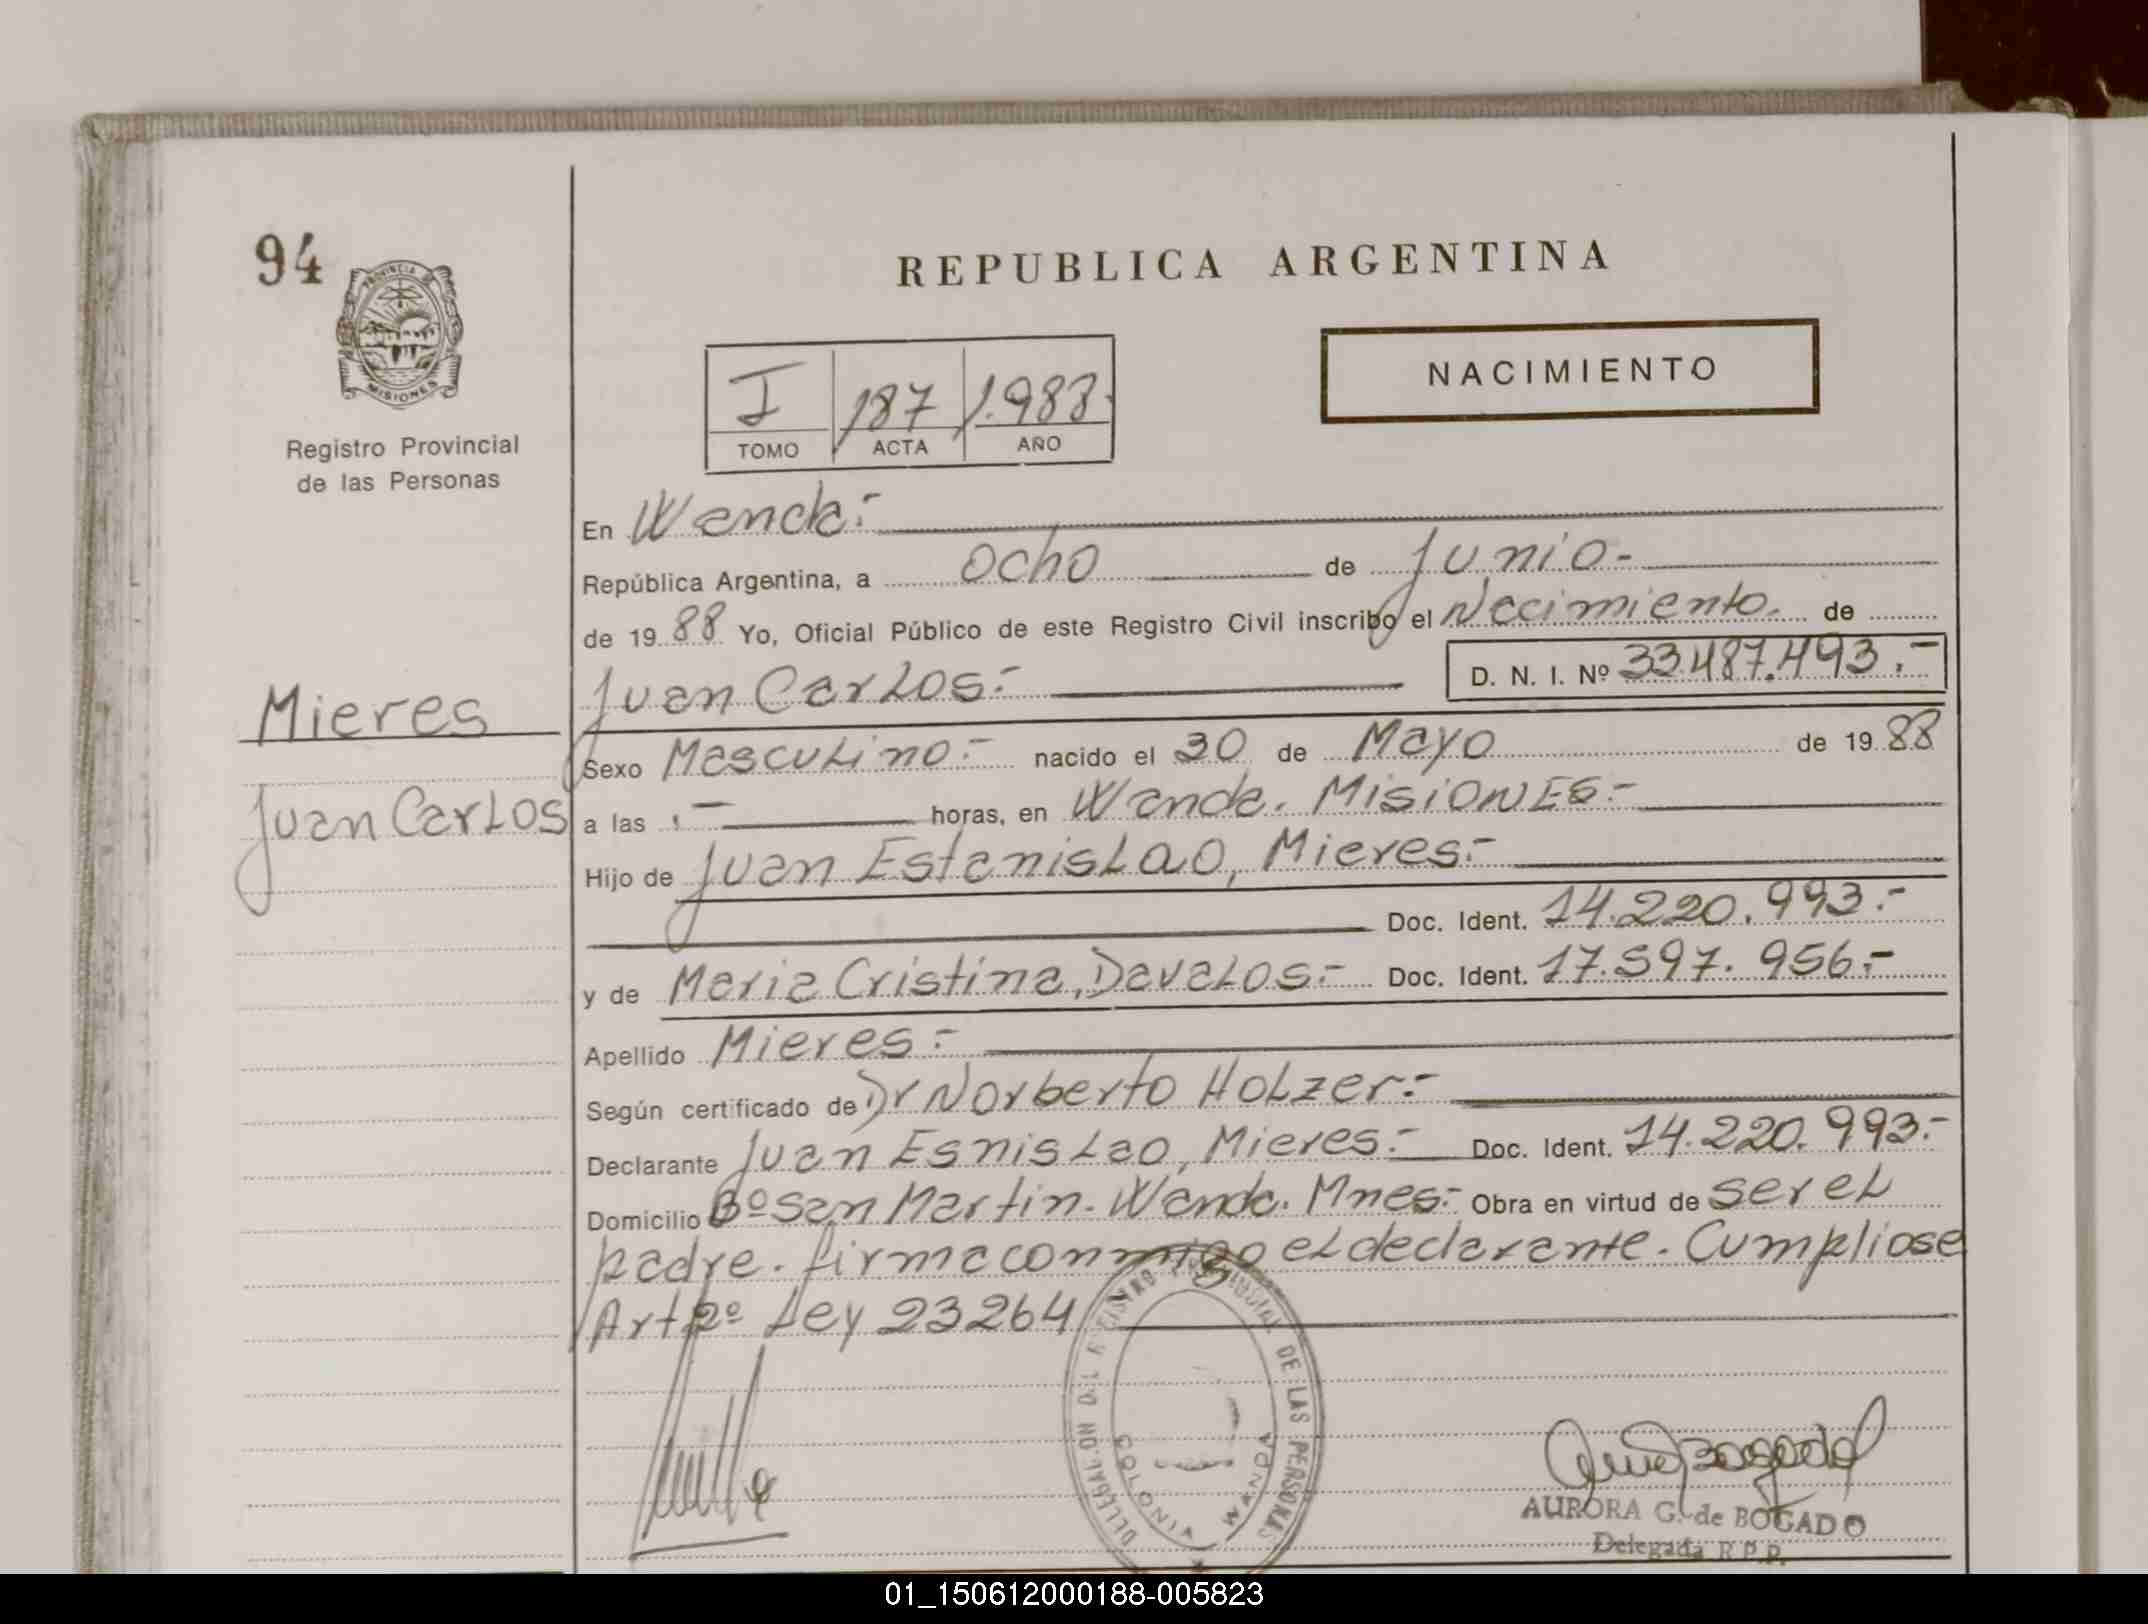 94
PROVINCIA DE
MISIONES
Registro Provincial
de las Personas
REPUBLICA ARGENTINA
NACIMIENTO
I 187 1.988.
TOMO ACTA AÑO
En Wanda:-
República Argentina, a ocho de Junio-
de 1988 Yo, Oficial Público de este Registro Civil inscribo el Nacimiento. de
Juan Carlos:- D. N. I. Nº 33.487.493.-
Mieres
Juan Carlos
Sexo Masculino:- nacido el 30 de Mayo de 1988
a las .- horas, en Wanda. Misiones:-
Hijo de Juan Estanislao, Mieres:-
Doc. Ident. 14.220.993:-
y de Maria Cristina, Davalos:- Doc. Ident. 17.597.956:-
Apellido Mieres:-
Según certificado de Dr Norberto Holzer:-
Declarante Juan Esnislao, Mieres:- Doc. Ident. 14.220.993:-
Domicilio Bº San Martin. Wanda. Mnes:- Obra en virtud de ser el
padre. firma conmigo el declarante. Cumpliose
Art 2º Ley 23264
REGISTRO PROVINCIAL DE LAS PERSONAS
COLONIA WANDA
AURORA G. de BOGADO
Delegada R.P.P.
01_150612000188-005823